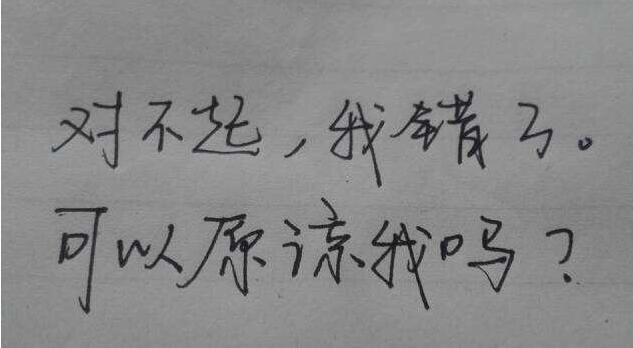 对不起，我错了。
可以原谅我吗？